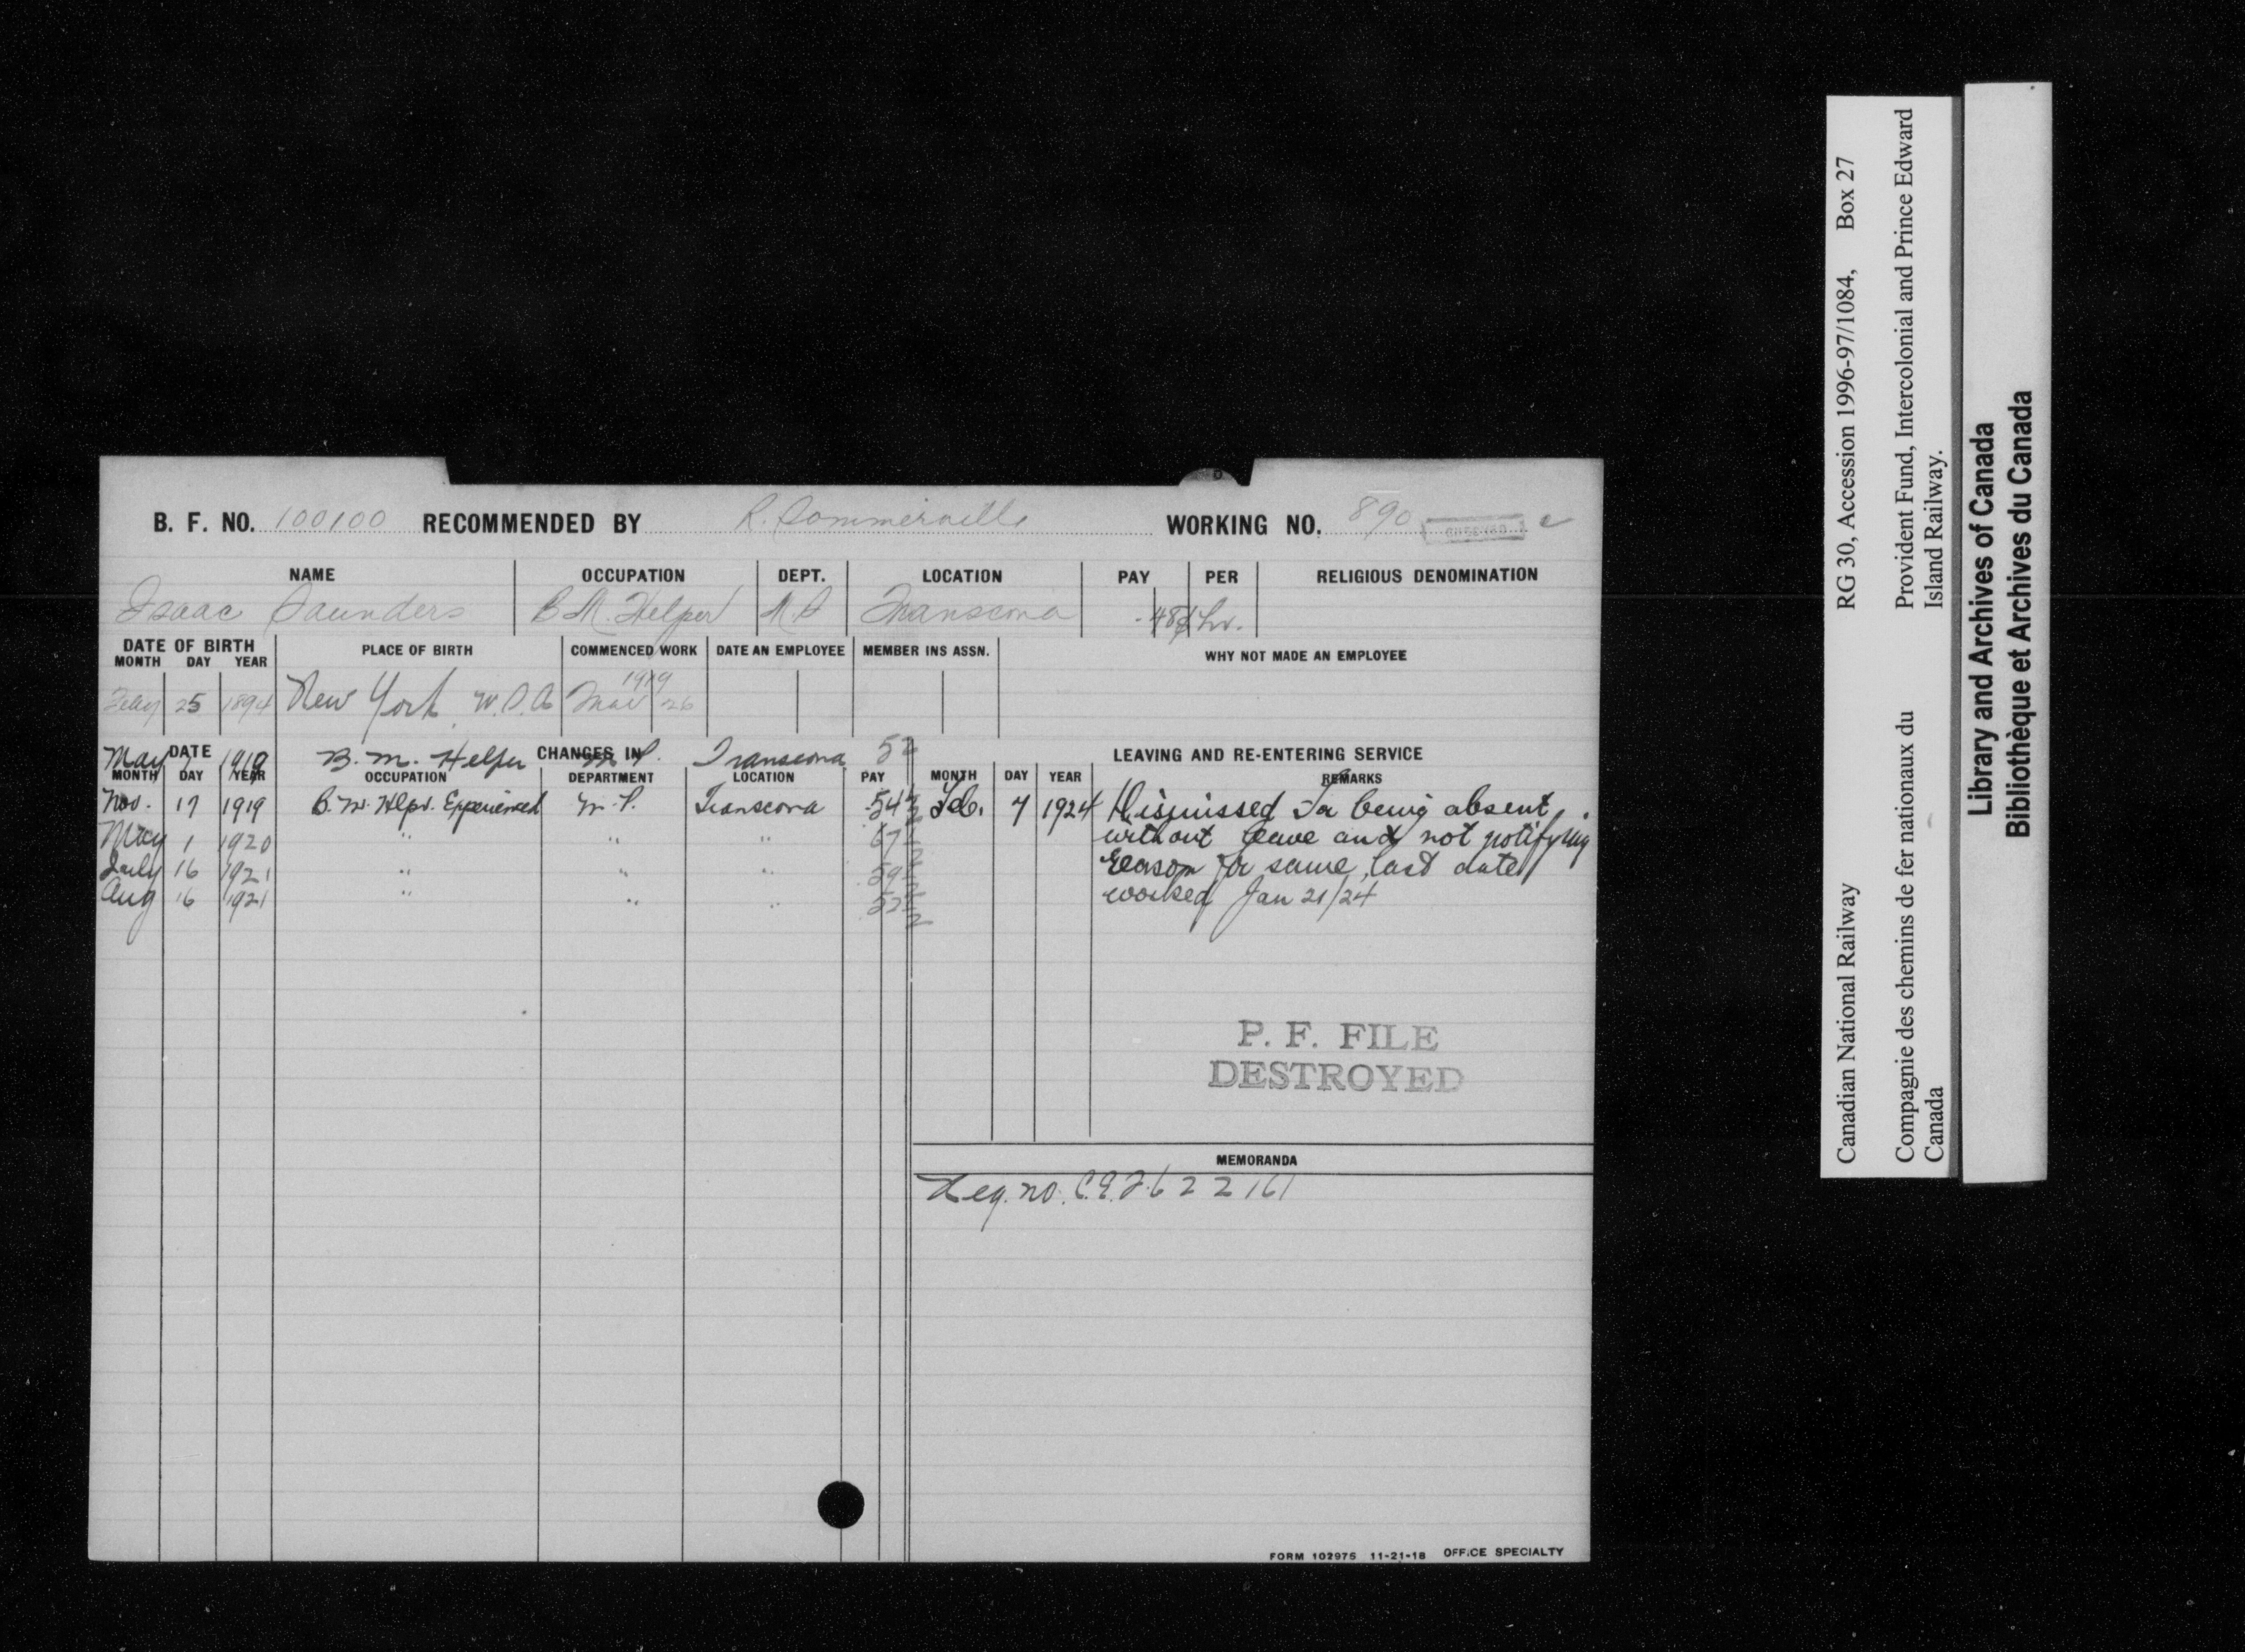 B. F. NO. 100100 RECOMMENDED BY R. Sommerville WORKING NO. 890
NAME OCCUPATION DEPT. LOCATION PAY PER RELIGIOUS DENOMINATION
Isaac Saunders B M. Helper M.P Transcona .48½ hr.
DATE OF BIRTH PLACE OF BIRTH COMMENCED WORK DATE AN EMPLOYEE MEMBER INS ASSN. WHY NOT MADE AN EMPLOYEE
MONTH DAY YEAR
1919
Feby 25 1894 New York Mar 26
DATE CHANGES IN LEAVING AND RE-ENTERING SERVICE
May 1 1919 B. M. Helper M P. Transcona 52
MONTH DAY YEAR OCCUPATION DEPARTMENT LOCATION PAY MONTH DAY YEAR REMARKS
Nov. 17 1919 B. M. Hlpr. Experienced M. P. Transcona .54½ Feb. 7 1924 Dismissed for being absent
May 1 1920 " " " 67½ without leave and not notifying
July 16 1921 " " " 59½ reason for same, last date
Aug 16 1921 " " " 57½ worked Jan 21/24
P. F. FILE
DESTROYED
MEMORANDA
Reg. no. C.E.F. 622161
FORM 102975 11-21-18 OFFICE SPECIALTY
Canadian National Railway RG 30, Accession 1996-97/1084, Box 27
Compagnie des chemins de fer nationaux du Canada
Provident Fund, Intercolonial and Prince Edward Island Railway.
Library and Archives of Canada
Bibliothèque et Archives du Canada